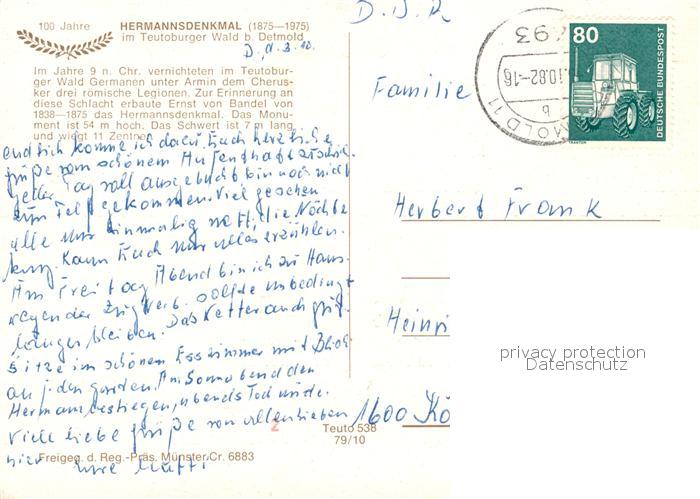 100 Jahre HERMANNSDENKMAL (1875—1975)
im Teutoburger Wald b. Detmold
Im Jahre 9 n. Chr. vernichteten im Teutobur-
ger Wald Germanen unter Armin dem Cherus-
ker drei römische Legionen. Zur Erinnerung an
diese Schlacht erbaute Ernst von Bandel von
1838—1875 das Hermannsdenkmal. Das Monu-
ment ist 54 m hoch. Das Schwert ist 7 m lang
und wiegt 11 Zentner.
endlich komme ich dazu Euch herzliche
Grüße vom schönem Aufenthalt zu schik.
jeder Tag voll ausgebucht bin noch nicht
zum Tel. gekommen. Viel gesehen
alle nur einmalig nett, die Nächte
kurz. Kann Euch nur alles erzählen.
Am Freitag Abend bin ich zu Haus.
wegen der Zugverb. sollte unbedingt
länger bleiben. Das Wetter auch gut.
Sitze im schönem Esszimmer mit Blick
auf den Garten. Am Sonnabend den
Hermann bestiegen, abends Todmüde.
Viele liebe Grüße von allen lieben
hier Eure Mutti
Teuto 538
79/10
Freigeg. d. Reg.-Präs. Münster Cr. 6883
Familie
Herbert Frank
Heinri
1600 Kö
93
.10.82-16
b
MOLD 11
80
DEUTSCHE BUNDESPOST
TRAKTOR
privacy protection
Datenschutz